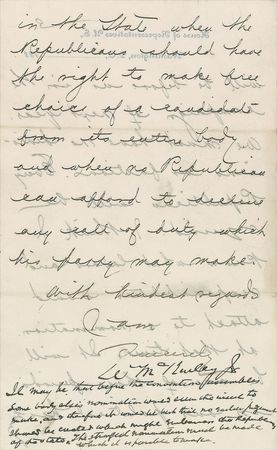 in the State when the
Republicans should have
the right to make free
choice of a candidate
from its entire body
and when no Republican
can afford to decline
any call of duty which
his party may make.
With kindest regards
I am
Sincerely
It may be that before the convention assembles
some body else's nomination would seem the wiser to
make, and therefore it would be best that no
should be created which might embarrass the Republicans
of the State. The strongest nomination must be made
which it is possible to make.